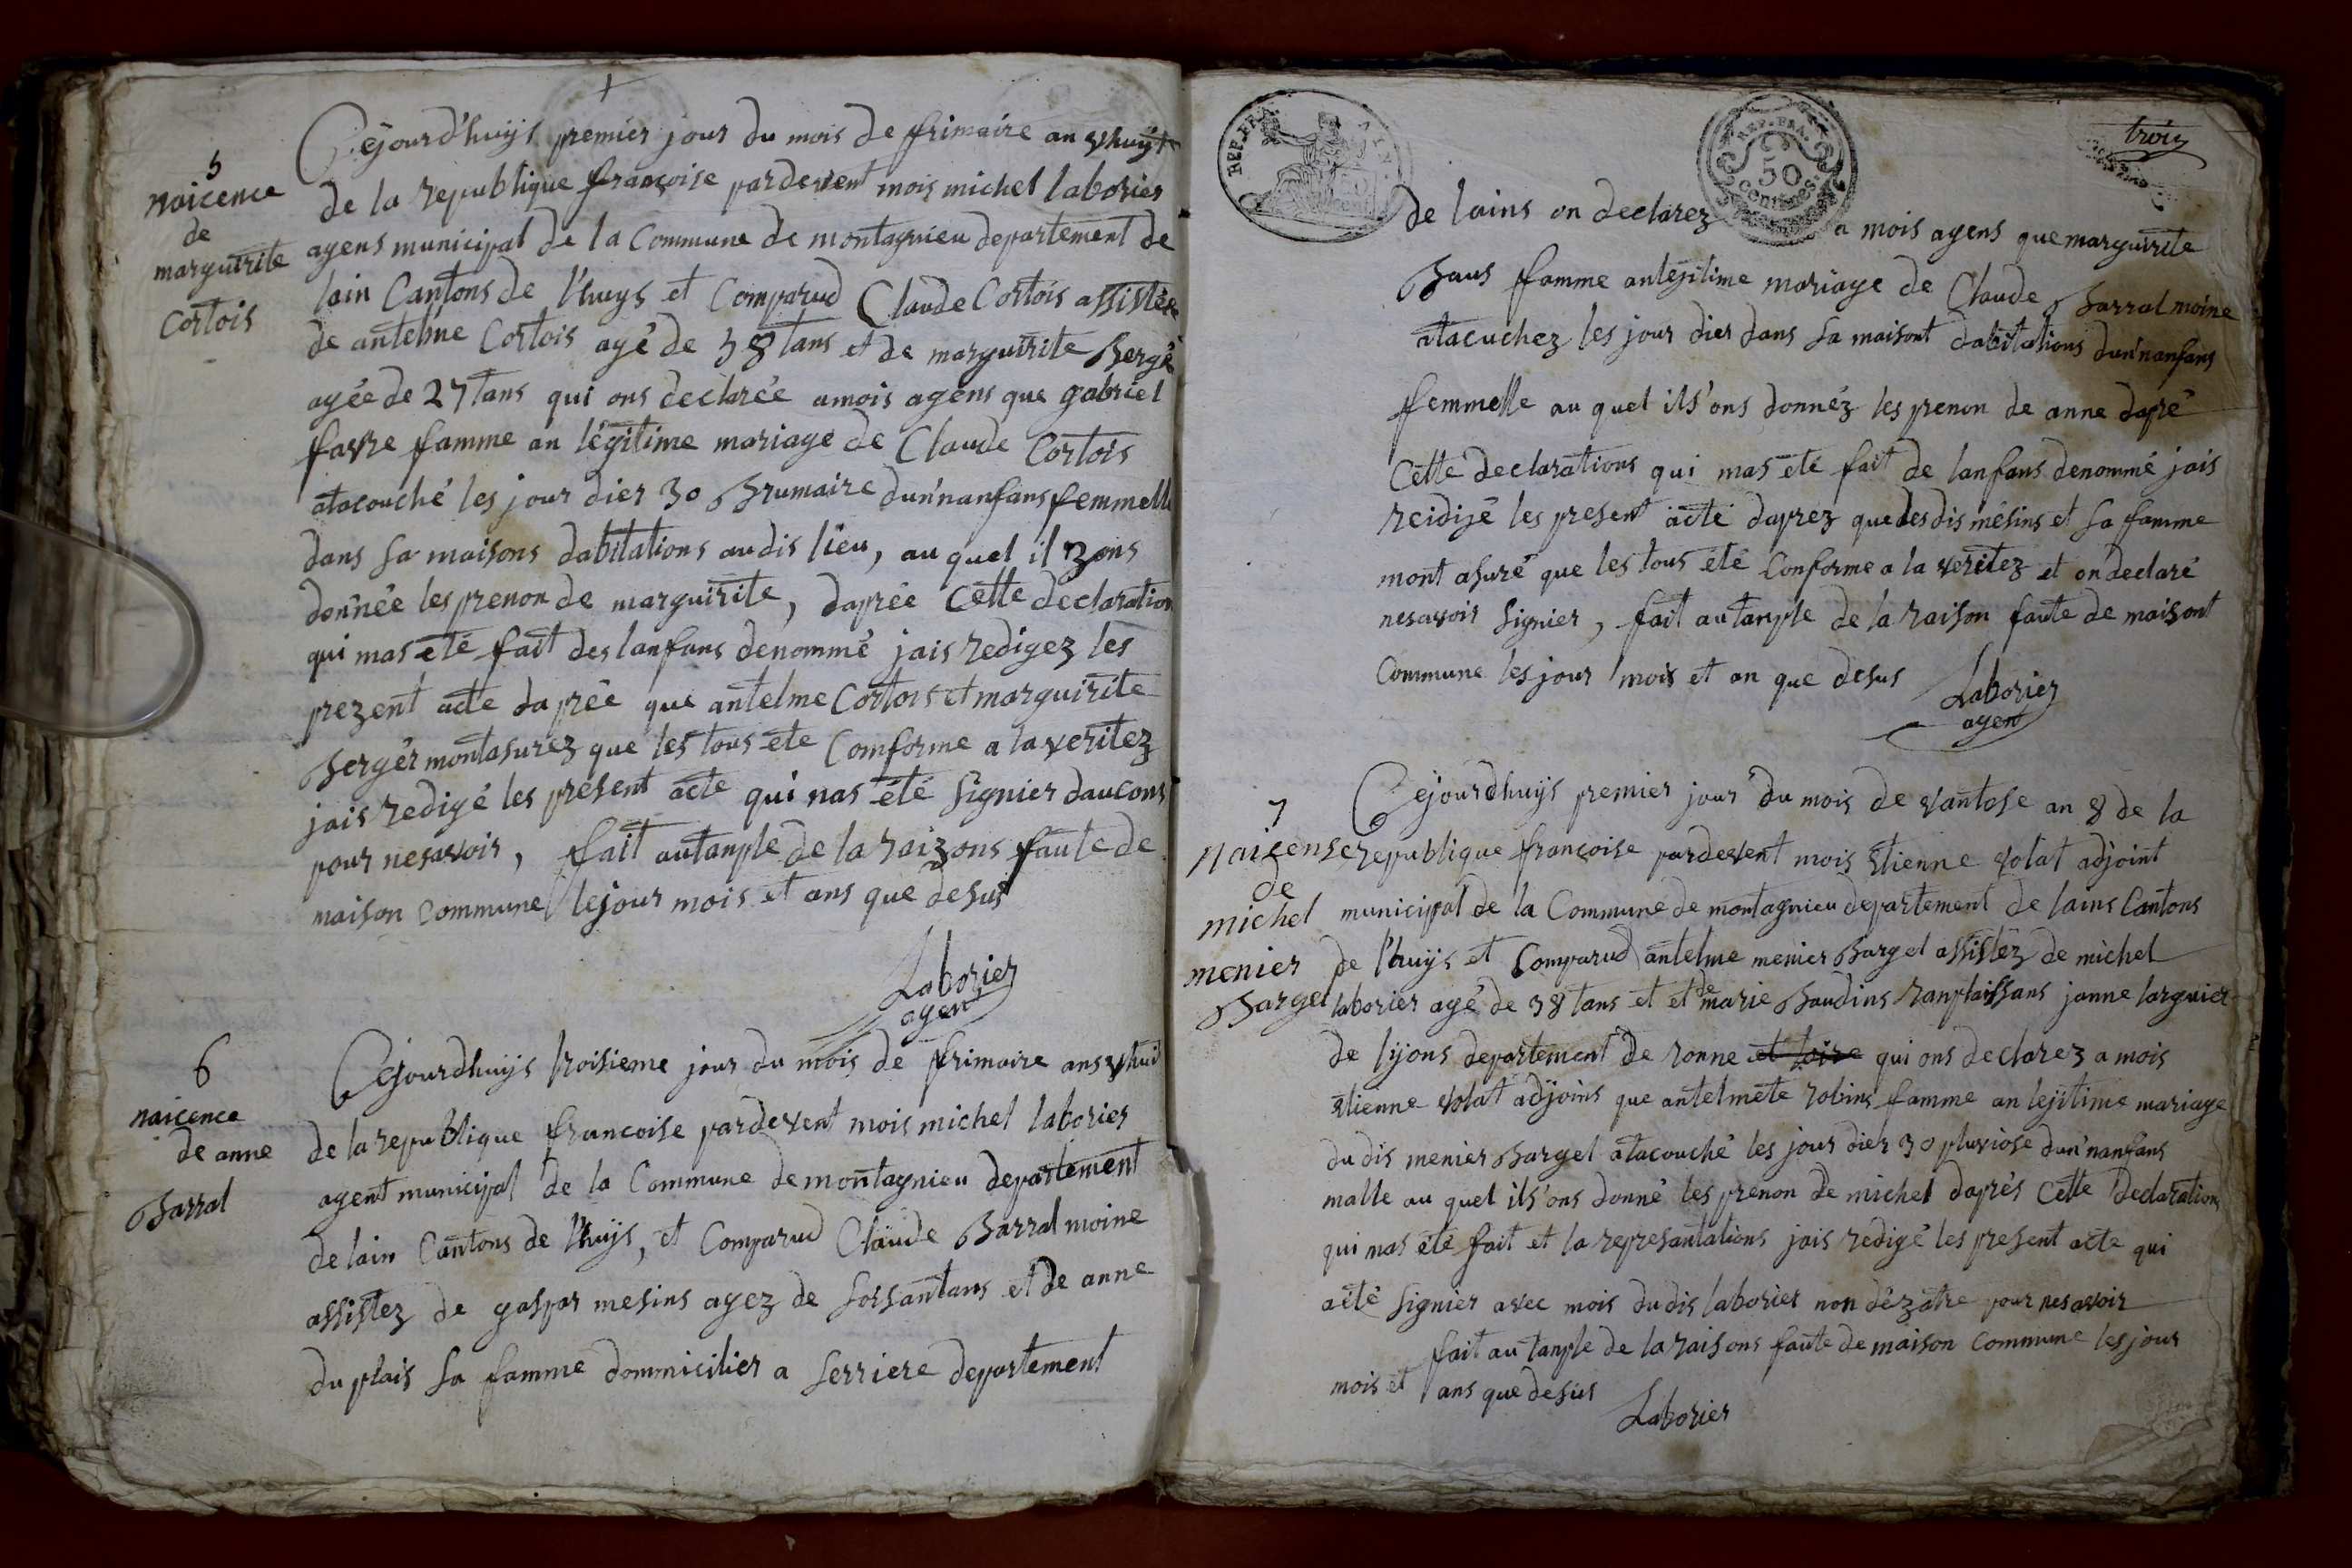 5
naicence
de
marguirite
Cortois
Cejourd'huijs premier jour du mois de frimaire an vhuit
de la republique françoise pardevent mois michel laborier
agens municipal de la Commune de montagnieu departement de
lain Cantons de l'huys et Comparud Claude Cortois assistée
de antelme Cortois agé de 38 tans et de marguirite Bergé
agée de 27 tans qui ons declarée amois agens que gabriel
favre famme an légitime mariage de Claude Cortois
atacouché les jour dier 30 Brumaire dun'nanfans femmelle
dans sa maisons dabitations audis lieu, au quel il zons
donnée les prenon de marguirite, daprée Cette declaration
qui mas eté fait des lanfans denommé jais redigez les
prezent acte daprée que antelme Cortois et marguirite
Bergér montasurez que les tous ete Comforme a la veritez
jais redigé les present acte qui nas été Signier daucons
pour nesavoir, fait autanple de la raizons faute de
maison Commune lejour mois et ans que desus
Laborier
agent
6
naicence
de anne
Barral
Cejourdhuijs troisieme jour du mois de frimaire ans vhuit
de la republique francoise pardevent mois michel laborier
agent municipal de la Commune de montagnieu departement
de lain Cantons de l'huijs, et Comparud Claude Barral moine
assistez de gaspar mesins agez de soisantans et de anne
duplais sa famme dommicilier a serriere departement
troix
REP. FRA.
REP. FRA.
50
centimes
de lains on declarez a mois agens que marguirite
Baus famme anlegitime mariage de Claude Barral moine
atacuchez les jour dier dans sa maisont dabitations dun'nanfans
femmelle au quel ils'ons donnéz les prenon de anne dapré
Cette declarations qui mas eté fait de lanfans denommé jais
reidijé les present acte daprez que des dis mésins et sa famme
mont asuré que les tous été Conforme a la veritez et on declaré
nesavoir Signier, fait autanple de la raison faute de maisont
Commune les jour mois et an que desus
Laborier
agent
7
Naicense
de
michel
menier
Barget
Cejourdhuijs premier jour du mois de vantose an 8 de la
republique françoise pardevent mois Etienne volat adjoint
municipal de la Commune de montagnieu departement de lains Cantons
de l'huijs et Comparud antelme menier Barget assistez de michel
laborier agé de 38 tans et et de marie Baudins ranplaissans janne larguier
de lijons departement de ronne et loire qui ons declarez a mois
Etienne volat adjoins que antelmete robins famme an lejitime mariage
du dis menier Barget atacouché les jour dier 30 pluviose dun'nanfans
malle au quel ils'ons donné les prenon de michel daprés Cette declaration
qui mas été fait et la represantations jais redigé les present acte qui
aété Signier avec mois dudis laborier non dézatre pour nesavoir
fait au tanple de la raisons faute de maison Commune les jour
mois et ans que desus
Laborier